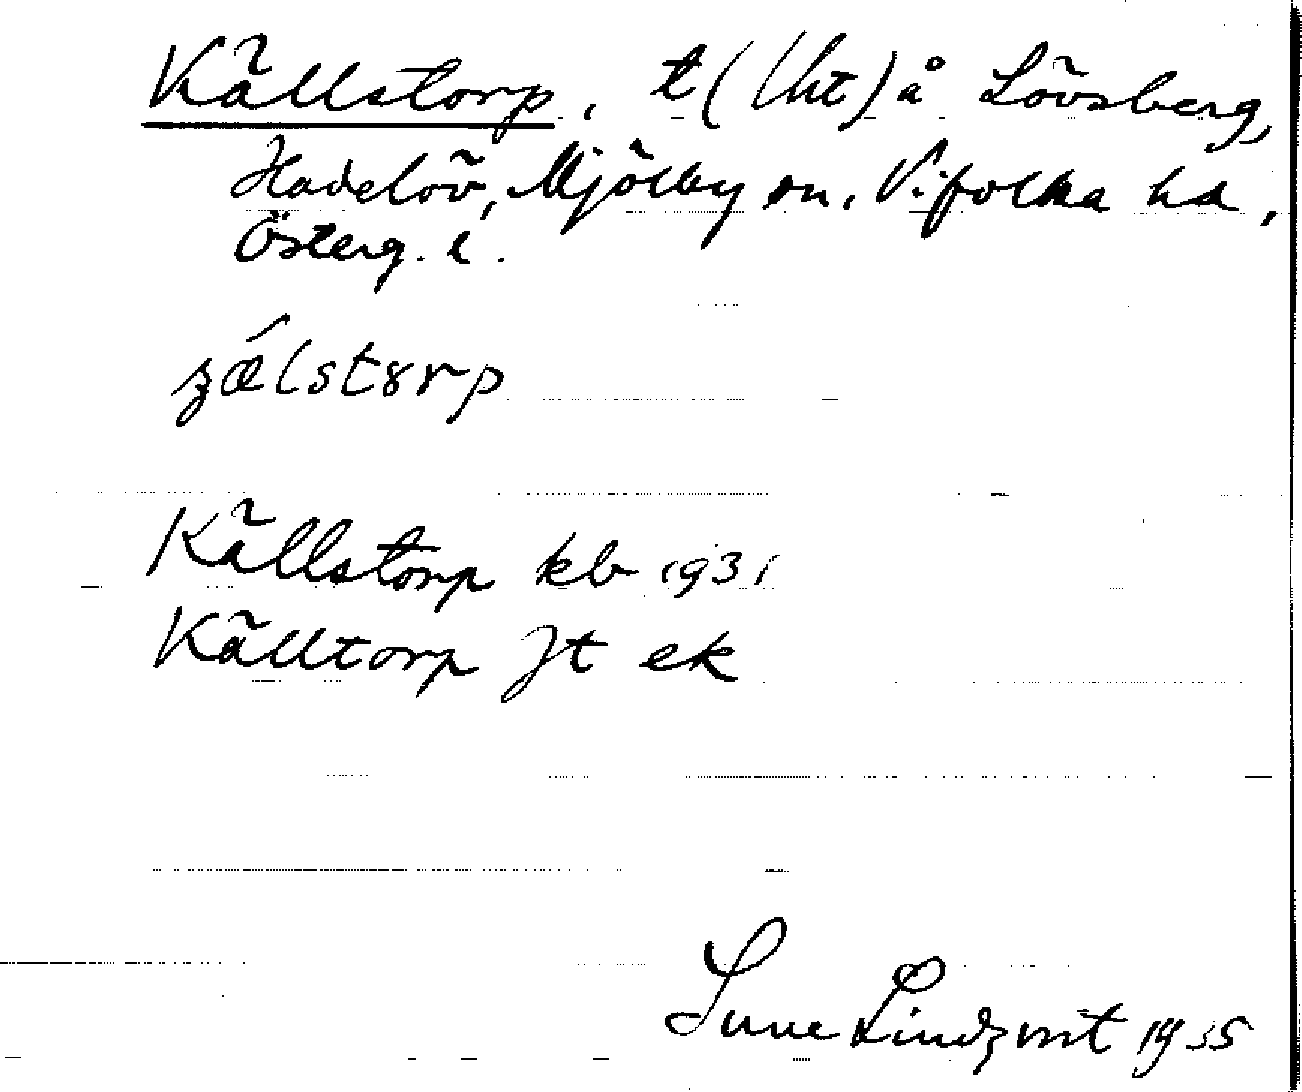 Källstorp, t (lht) å Lövsberg,
Hadelöv, Mjölby sn, Vifolka hd,
Österg. l.
Källstorp kb 1931
Källtorp Jt ek
Sune Lindqvist 1935